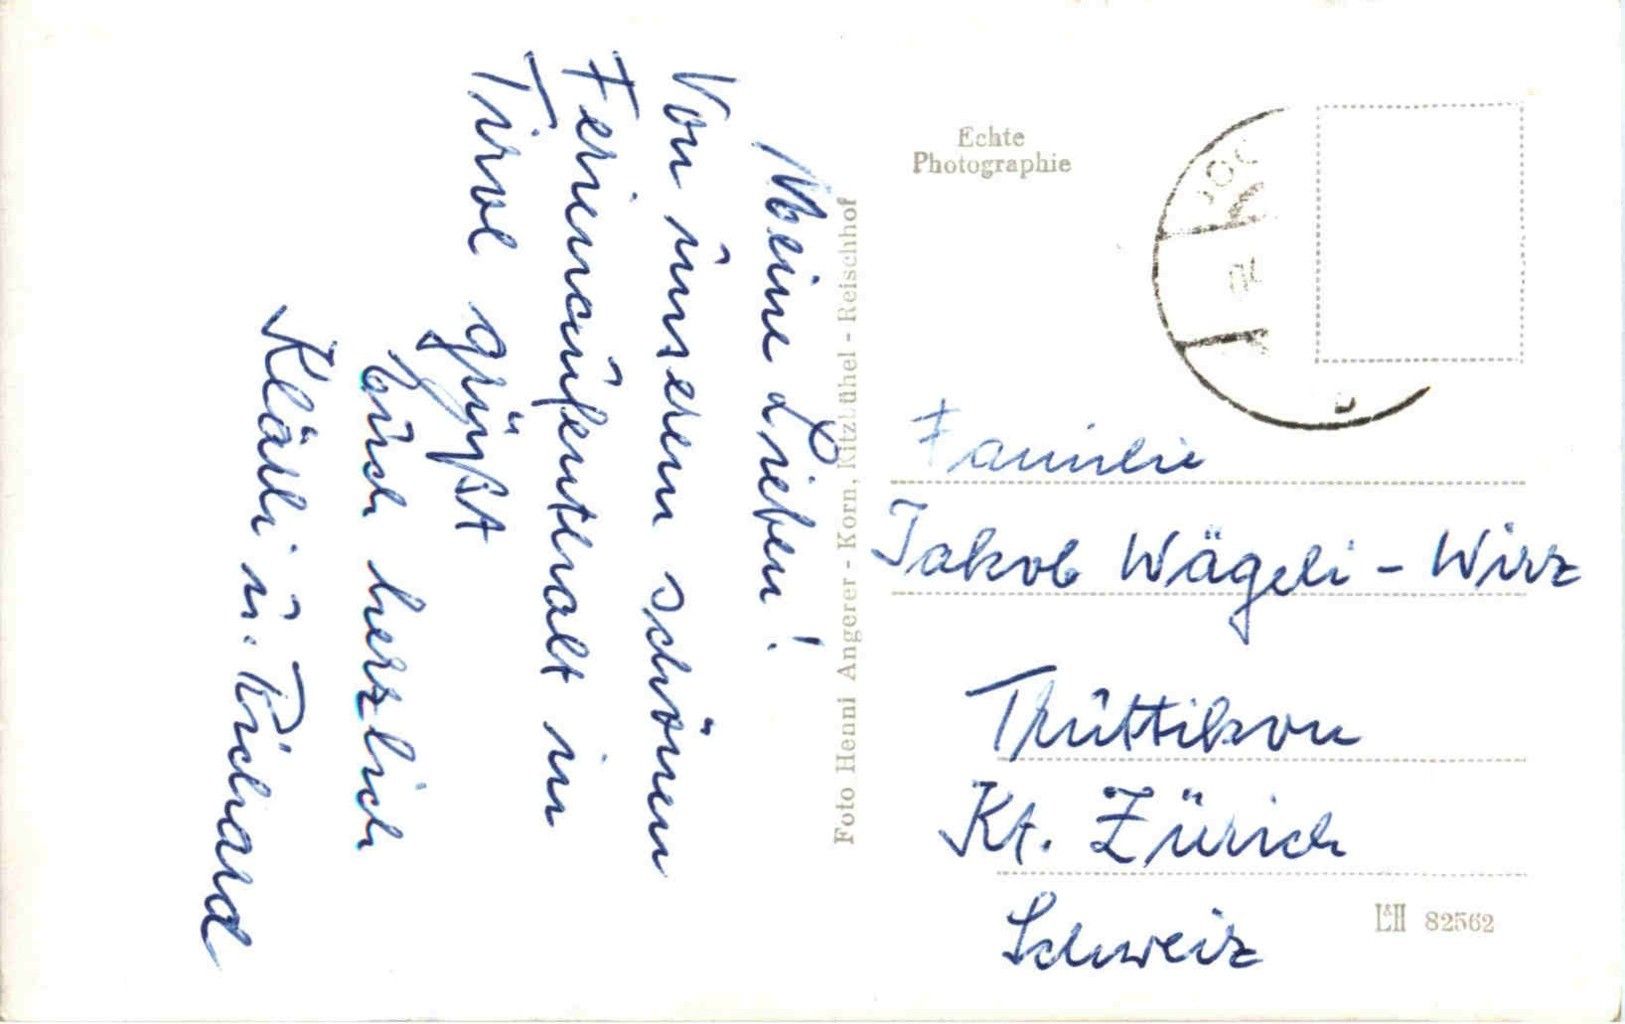 Meine Lieben!
Von unserem schönen
Ferienaufenthalt in
Tirol grüßt
Euch herzlich
Klärli u. Richard
Foto Henni Angerer - Korn, Kitzbühel - Reischhof
Echte
Photographie
Familie
Jakob Wägeli - Wirz
Trüttikon
Kt. Zürich
Schweiz
L&H 82562